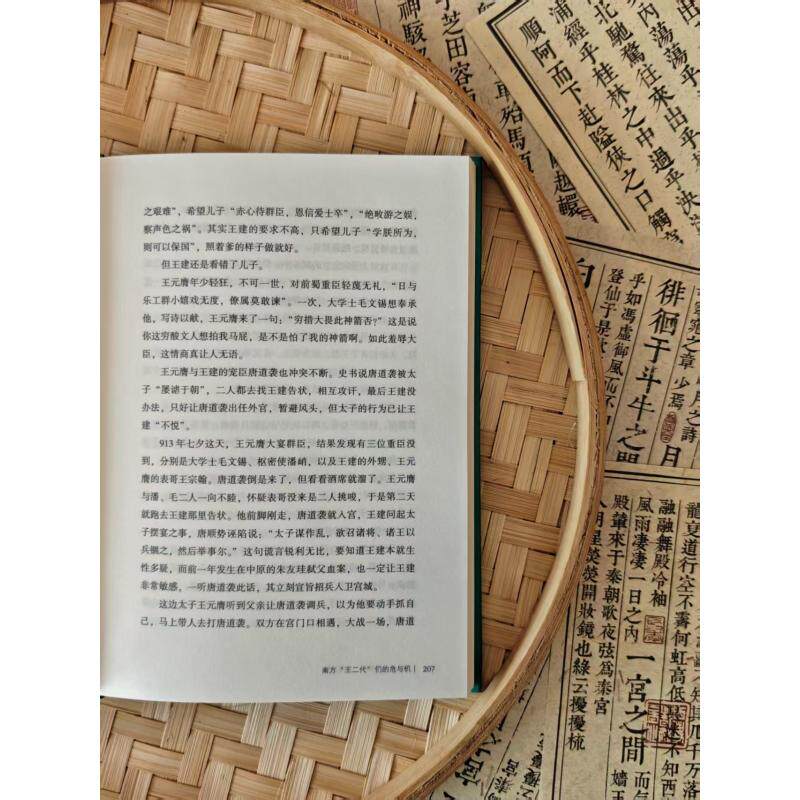 之艰难”，希望儿子“赤心待群臣，恩信爱士卒”，“绝畋游之娱，
察声色之祸”。其实王建的要求不高，只希望儿子“学朕所为，
则可以保国”，照着爹的样子做就好。
但王建还是看错了儿子。
王元膺年少轻狂，不可一世，对前蜀重臣轻蔑无礼，“日与
乐工群小嬉戏无度，僚属莫敢谏”。一次，大学士毛文锡想奉承
他，写诗以献，王元膺来了一句：“穷措大畏此神箭否？”这是说
你这穷酸文人想拍我马屁，是不是怕了我的神箭啊。如此羞辱大
臣，这情商真让人无语。
王元膺与王建的宠臣唐道袭也冲突不断。史书说唐道袭被太
子“屡谑于朝”，二人都去找王建告状，相互攻讦，最后王建没
办法，只好让唐道袭出任外官，暂避风头，但太子的行为已让王
建“不悦”。
913 年七夕这天，王元膺大宴群臣，结果发现有三位重臣没
到，分别是大学士毛文锡、枢密使潘峭，以及王建的外甥、王元
膺的表哥王宗翰。唐道袭倒是来了，但看看酒席就溜了。王元膺
与潘、毛二人一向不睦，怀疑表哥没来是二人挑唆，于是第二天
就跑去王建那里告状。他前脚刚走，唐道袭就入宫，王建问起太
子摆宴之事，唐顺势诬陷说：“太子谋作乱，欲召诸将、诸王以
兵锢之，然后举事尔。”这句谎言锋利无比，要知道王建本就生
性多疑，而前一年发生在中原的朱友珪弑父血案，也一定让王建
非常敏感，一听唐道袭此话，其立刻宣旨招兵入卫宫城。
这边太子王元膺听到父亲让唐道袭调兵，以为他要动手抓自
己，马上带人去打唐道袭。双方在宫门口相遇，大战一场，唐道
南方“王二代”们的危与机 | 207
内蕩蕩乎
北馳驚往來出乎
浦經乎桂林之中過乎泱
順阿而下赴隘狹之口觸
徘徊于斗牛之間
乎如馮虛御風
登仙于是
窕之章少焉
龍夏道行空不霽何虹高低
融融舞殿冷袖
風雨淒淒一日之內
一宮之間
殿輦來于秦朝歌夜弦爲秦宮
明星熒熒開妝鏡也綠云擾擾梳
而氣